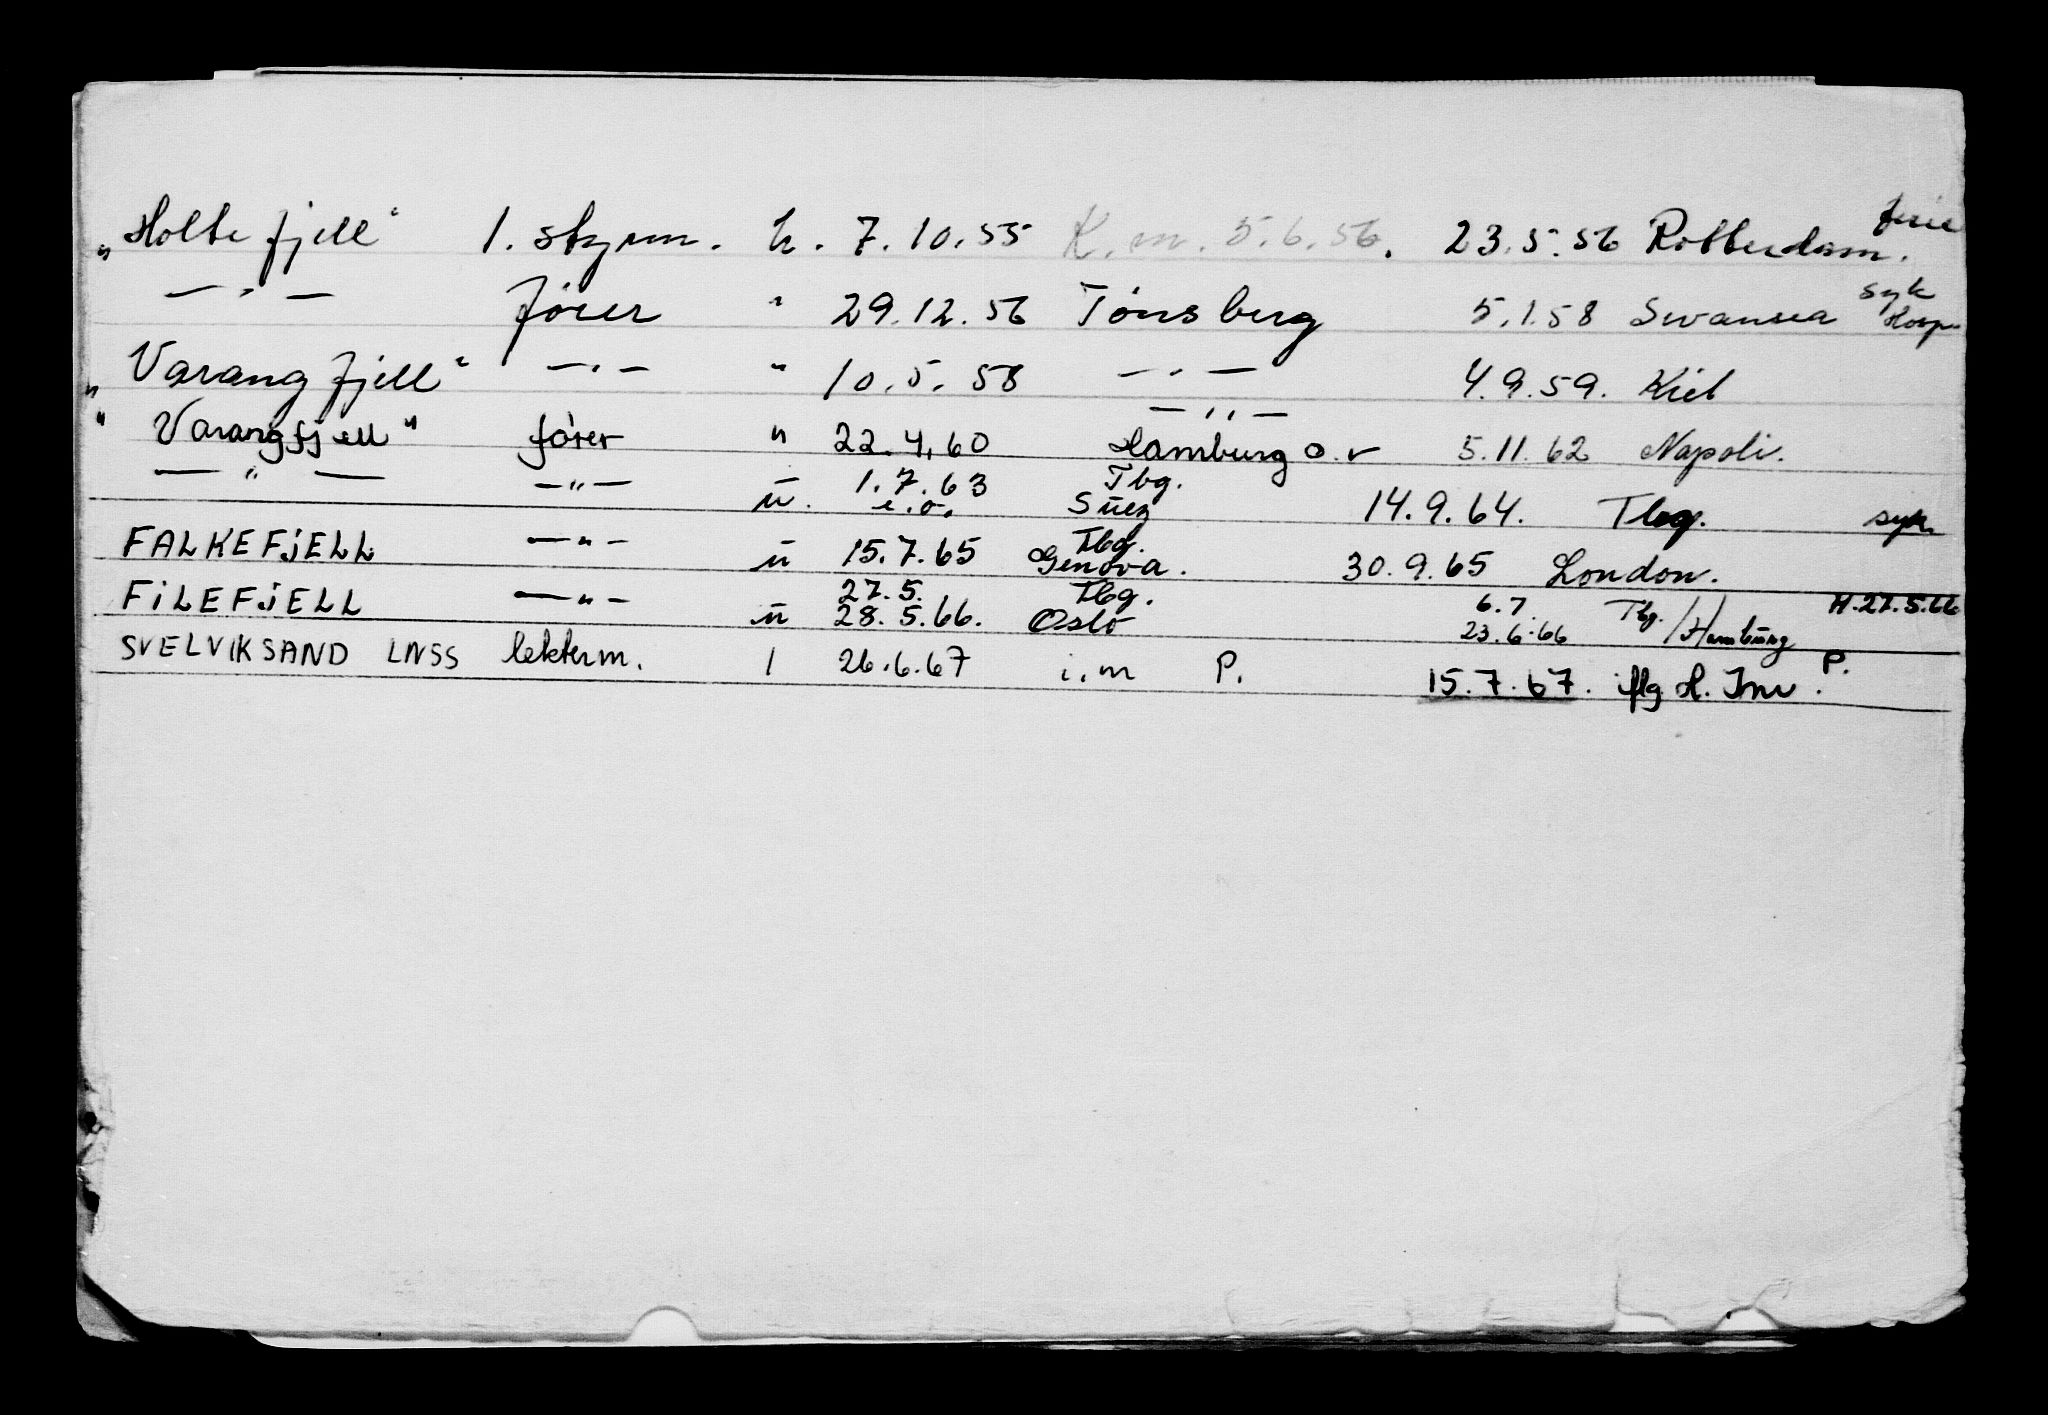 „Holtefjell" 1. styrm. u. 7.10.55 K.m. 5.6.56. 23.5.56 Rotterdam. ferie
— " — fører " 29.12.56 Tønsberg 5.1.58 Swansea syk Hosp.
„Varangfjell" — " — " 10.5.58 — " — 4.9.59. Kiel
— " —
"Varangfjell" fører " 22.4.60 Hamburg o.v 5.11.62 Napoli.
— " — — " — u. 1.7.63 Tbg. 14.9.64. Tbg. syk
i.o. Suez
FALKEFJELL — " — u 15.7.65 Tbg. Genova. 30.9.65 London.
FILEFJELL — " — u 27.5. Tbg. 6.7. Tbg./Hamburg H.27.5.66
28.5.66. Oslo 23.6.66
SVELVIKSAND LNSS lekterm. 1 26.6.67 i.m P. 15.7.67. iflg H. Inv. P.